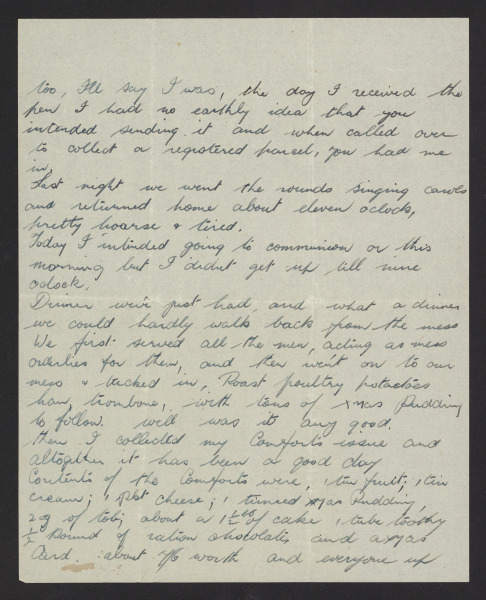 too, I'll say I was, the day I received the
pen I had no earthly idea that you
intended sending it and when called over
to collect a registered parcel, you had me
in.
Last night we went the rounds singing carols
and returned home about eleven oclock,
pretty hoarse & tired.
Today I intended going to communion or this
morning but I didn't get up till nine
oclock.
Dinner we've just had, and what a dinner
we could hardly walk back from the mess
We first served all the men, acting as mess
orderlies for them, and then went on to our
mess & tucked in, Roast poultry potatoes
ham, trombone, with tons of xmas Pudding
to follow. well was it any good.
Then I collected my Comforts issue and
altogether it has been a good day
Contents of the Comforts were, 1 tin fruit; 1 tin
cream; 1 pkt cheese; 1 tinned xmas Pudding,
2 oz of tob; about a 1½ lb of cake 1 tube toothy
½ Pound of ration chocolates and a xmas
Card. about 7/6 worth and everyone up